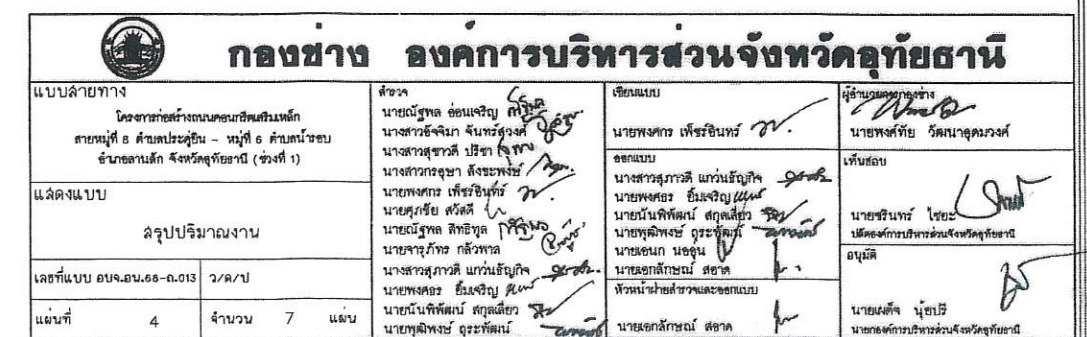 กองช่าง องค์การบริหารส่วนจังหวัดอุทัยธานี
แบบสายทาง
โครงการก่อสร้างถนนคอนกรีตเสริมเหล็ก
สายหมู่ที่ 8 ตำบลประดู่ยืน - หมู่ที่ 6 ตำบลน้ำรอบ
อำเภอลานสัก จังหวัดอุทัยธานี (ช่วงที่ 1)
แสดงแบบ
สรุปปริมาณงาน
เลขที่แบบ อบจ.อน.68-ถ.013 ว/ด/ป
แผ่นที่ 4 จำนวน 7 แผ่น
สำรวจ
นายณัฐพล อ่อนเจริญ
นางสาวอัจจิมา จันทร์สุวงค์
นางสาวสุชาวดี ปรีชา
นางสาวกรอุษา สังขะพงษ์
นายพงศกร เพ็ชรอินทร์
นายศุภชัย สวัสดี
นายณัฐพล สิทธิทูล
นายจารุภัทร กลัวพาล
นางสาวสุภาวดี แกว่นธัญกิจ
นายพงศธร ยิ้มเจริญ
นายนันพิพัฒน์ สกุลเลี่ยว
นายพุฒิพงษ์ ฤระพัฒน์
เขียนแบบ
นายพงศกร เพ็ชรอินทร์
ออกแบบ
นางสาวสุภาวดี แกว่นธัญกิจ
นายพงศธร ยิ้มเจริญ
นายนันพิพัฒน์ สกุลเลี่ยว
นายพุฒิพงษ์ ฤระพัฒน์
นายเอนก นออุน
นายเอกลักษณ์ สอาด
หัวหน้าฝ่ายสำรวจและออกแบบ
นายเอกลักษณ์ สอาด
ผู้อำนวยการกองช่าง
นายพงศ์ทัย วัฒนาอุดมวงศ์
เห็นชอบ
นายชรินทร์ ไชยะ
ปลัดองค์การบริหารส่วนจังหวัดอุทัยธานี
อนุมัติ
นายเผด็จ นุ้ยปรี
นายกองค์การบริหารส่วนจังหวัดอุทัยธานี